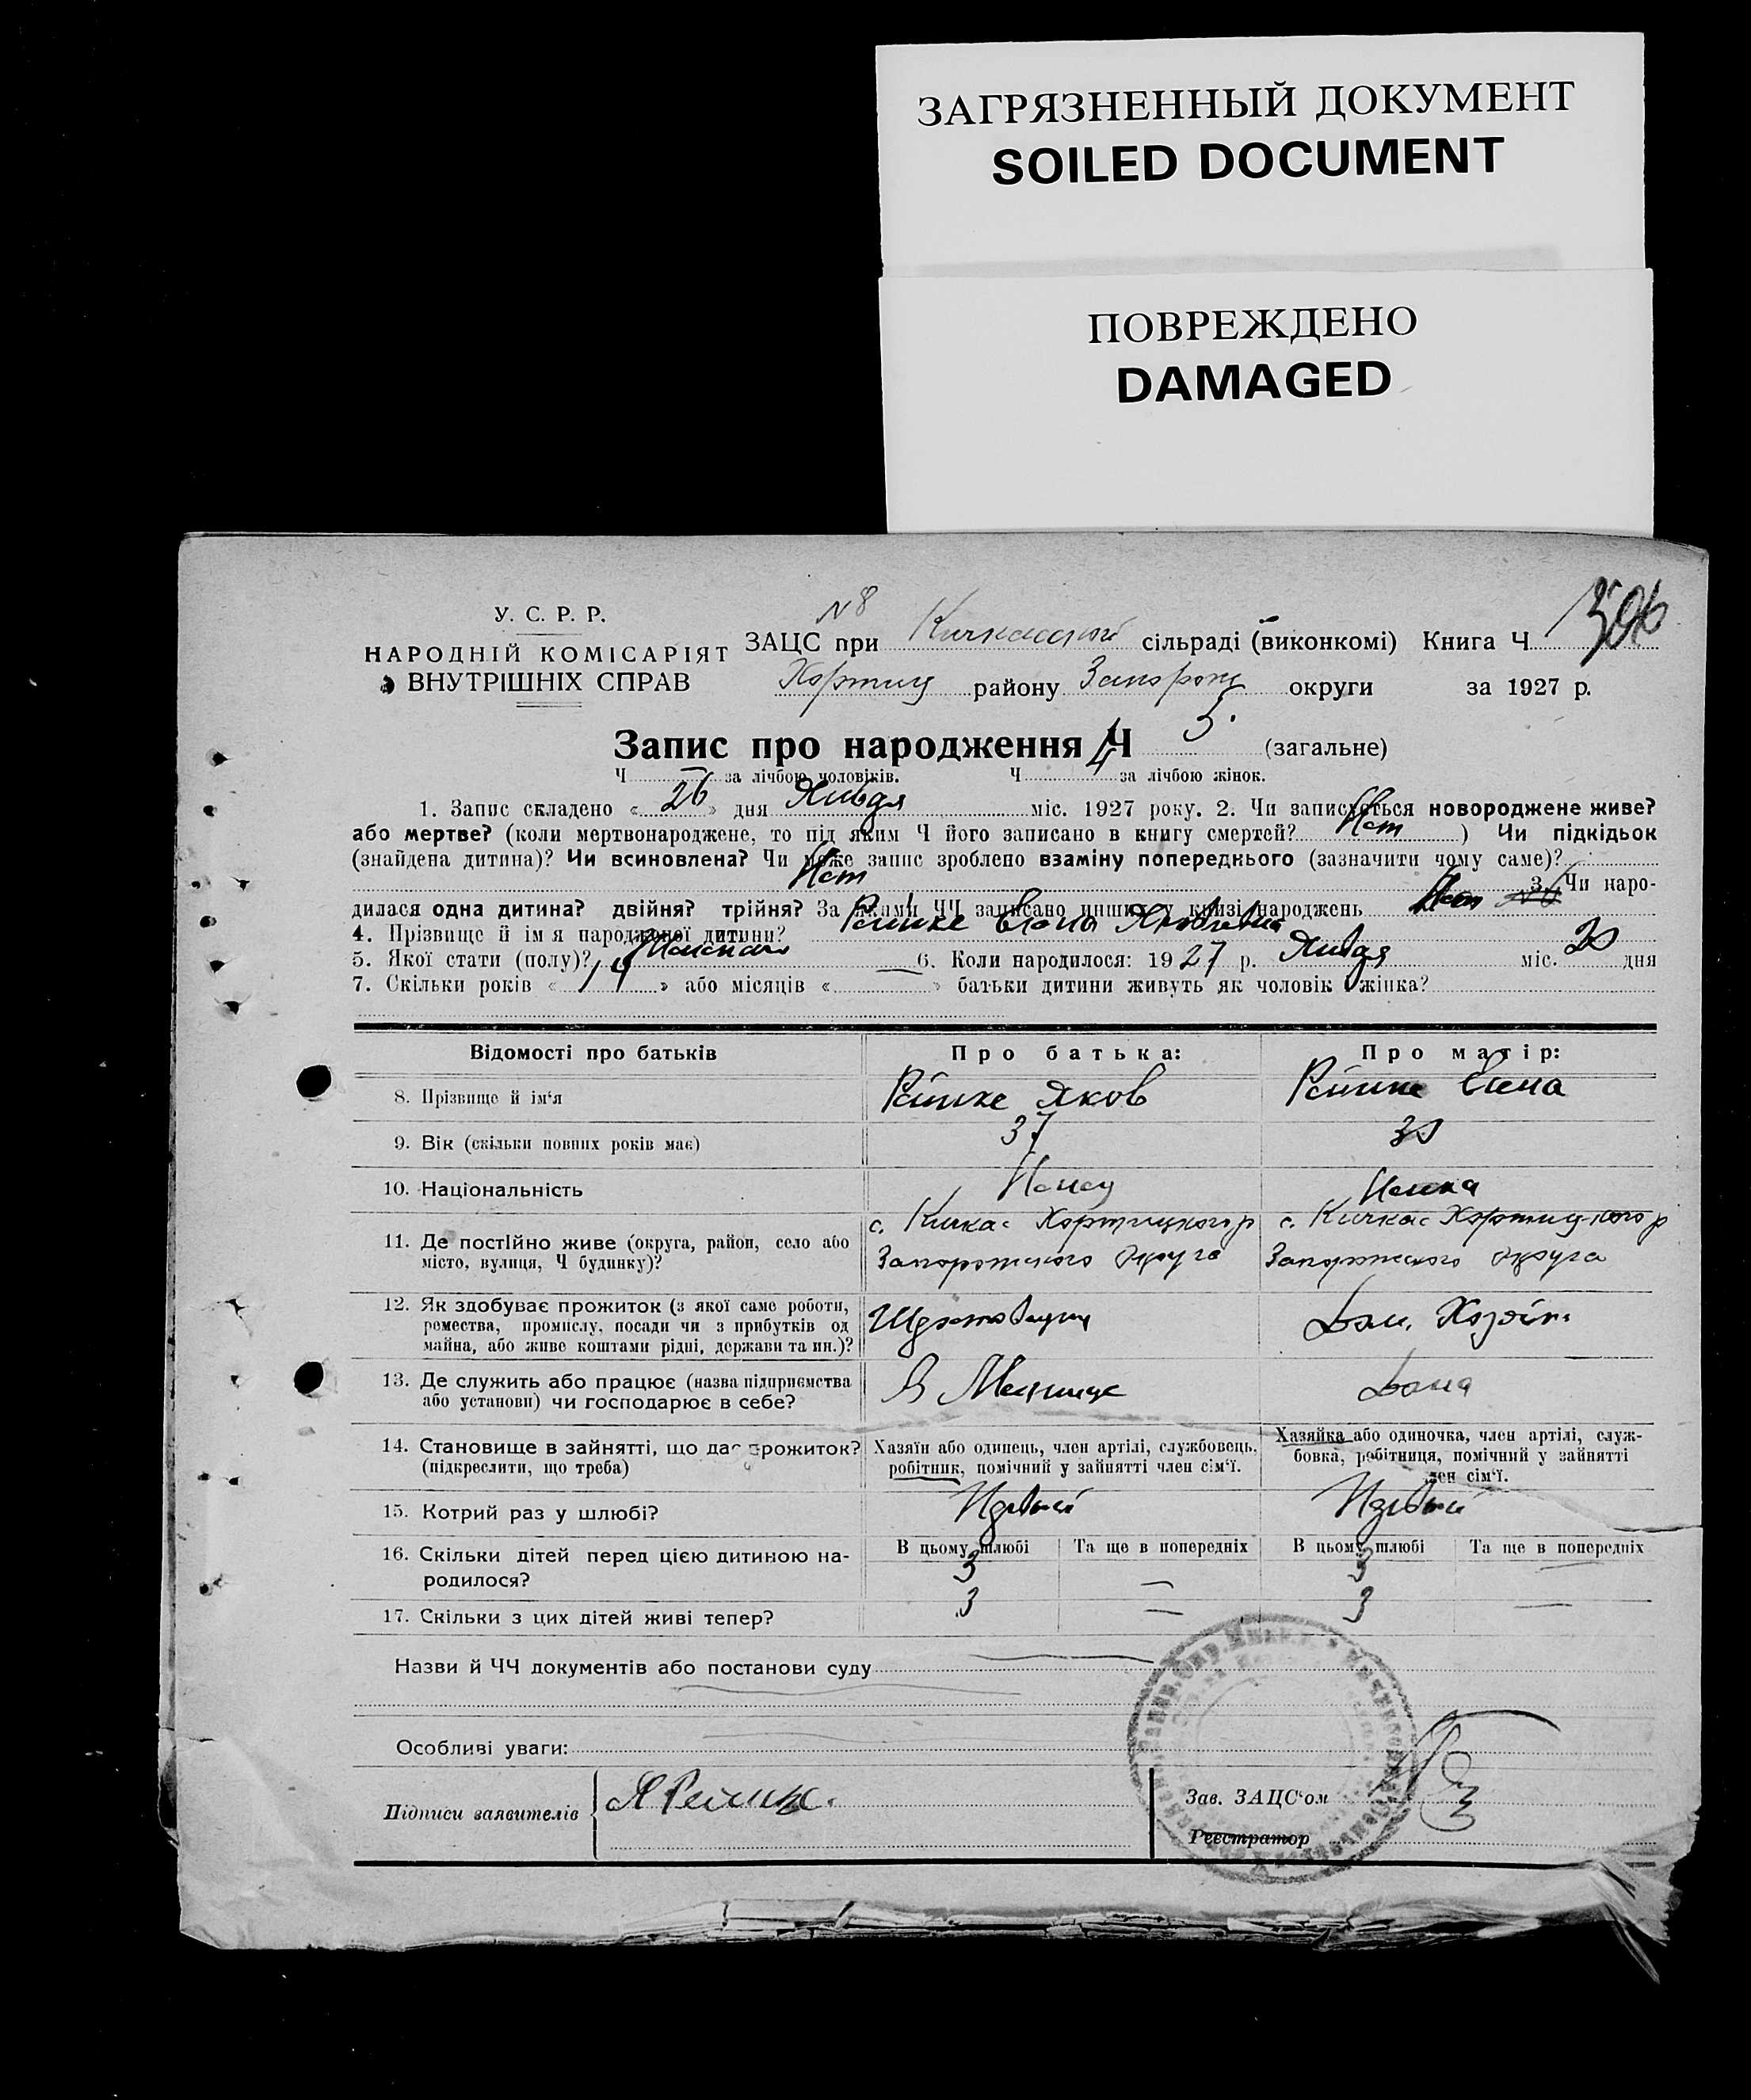 ЗАГРЯЗНЕННЫЙ ДОКУМЕНТ
SOILED DOCUMENT
ПОВРЕЖДЕНО
DAMAGED
У. С. Р. Р.
НАРОДНІЙ КОМІСАРІЯТ
ВНУТРІШНІХ СПРАВ
N 8
ЗАЦС при Кичкасской сільраді (виконкомі) Книга Ч
Хортиц району Запорож округи за 1927 р.
Запис про народження Ч 5. (загальне)
Ч — за лічбою чоловіків. Ч 4 за лічбою жінок.
1. Запис складено « 26 » дня Января міс. 1927 року. 2. Чи записується новороджене живе?
або мертве? (коли мертвонароджене, то під яким Ч його записано в книгу смертей? Нет ) Чи підкідьок
(знайдена дитина)? Чи всиновлена? Чи може запис зроблено взаміну попереднього (зазначити чому саме)?
Нет 3. Чи наро-
дилася одна дитина? двійня? трійня? За якими ЧЧ записано инших у книзі народжень Нет
4. Прізвище й ім я народженої дитини? Яковлевна
5. Якої стати (полу)? Женская 6. Коли народилося: 19 27 р. Января міс. 20 дня
7. Скільки років « » або місяців « » батьки дитини живуть як чоловік жінка?
Відомості про батьків Про батька: Про матір:
8. Прізвище й ім'я Рейнке Яков Рейнке Елена
9. Вік (скільки повних років має) 37 30
10. Національність Немец Немка
11. Де постІйно живе (округа, район, село або місто, вулиця, Ч будинку)? с. Кичкас Хортицкого р с. Кичкас Хортицкого р
Запорожского округа Запорожского округа
12. Як здобуває прожиток (з якої саме роботи,
ремества, промислу, посади чи з прибутків од
майна, або живе коштами рідні, держави та ин.)? Дом. Хозяйн
13. Де служить або працює (назва підприємства
або установи) чи господарює в себе? В Дома
14. Становище в зайнятті, що дає прожиток?
(підкреслити, що треба)
Хазяїн або одинець, член артілі, службовець,
робітник, помічний у зайнятті член сім'ї.
Хазяйка або одиночка, член артілі, служ-
бовка, робітниця, помічний у зайнятті
член сім'ї.
15. Котрий раз у шлюбі? Первый Первый
16. Скільки дітей перед цією дитиною на-
родилося?
В цьому шлюбі Та ще в попередніх В цьому шлюбі Та ще в попередніх
3 — 3 —
17. Скільки з цих дітей живі тепер? 3 — 3 —
Назви й ЧЧ документів або постанови суду
Особливі уваги:
Підписи заявителів Я Рейнке.
Зав. ЗАЦС'ом
Реєстратор